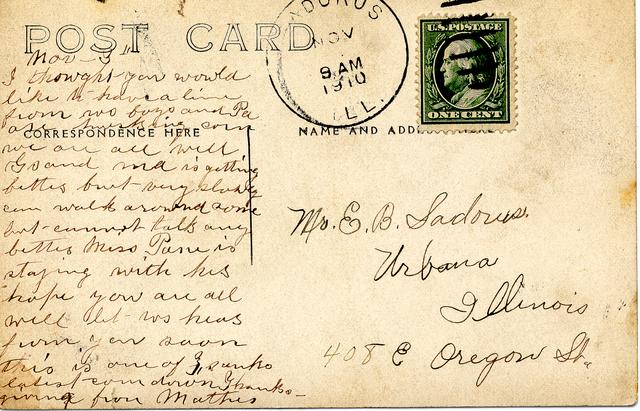 POST CARD
Nov - 3"
I thought you would
like to have a line
from us boys and Pa
are husking corn
we are all well
Grand ma is getting
better but very slowly
can walk around some
but cannot talk any
better Miss Pane is
staying with his
hope you are all
will let us hear
from you soon
this is one of Franks
latest come down Thanks-
giving from Mathis -
CORRESPONDENCE HERE
NOV
9 AM
1910
ILL.
U.S. POSTAGE
ONE CENT
NAME AND
Mr. E. B. Sadorus.
Urbana
Illinois
408 E Oregon St.